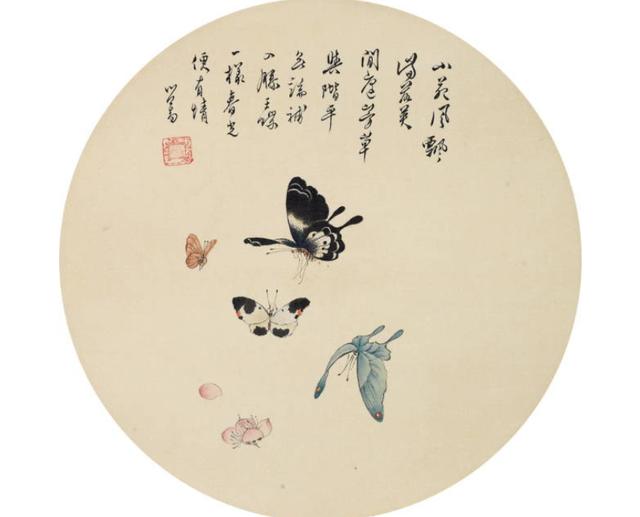 小苑風飄
滿落英
閒庭芳草
與階平
無端補
入滕王蝶
一樣春光
便有情
心畬